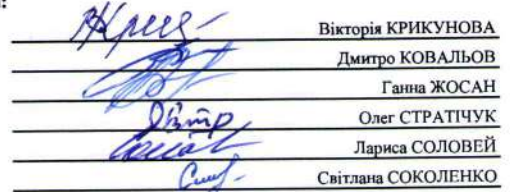 Вікторія КРИКУНОВА
Дмитро КОВАЛЬОВ
Ганна ЖОСАН
Олег СТРАТІЧУК
Лариса СОЛОВЕЙ
Світлана СОКОЛЕНКО